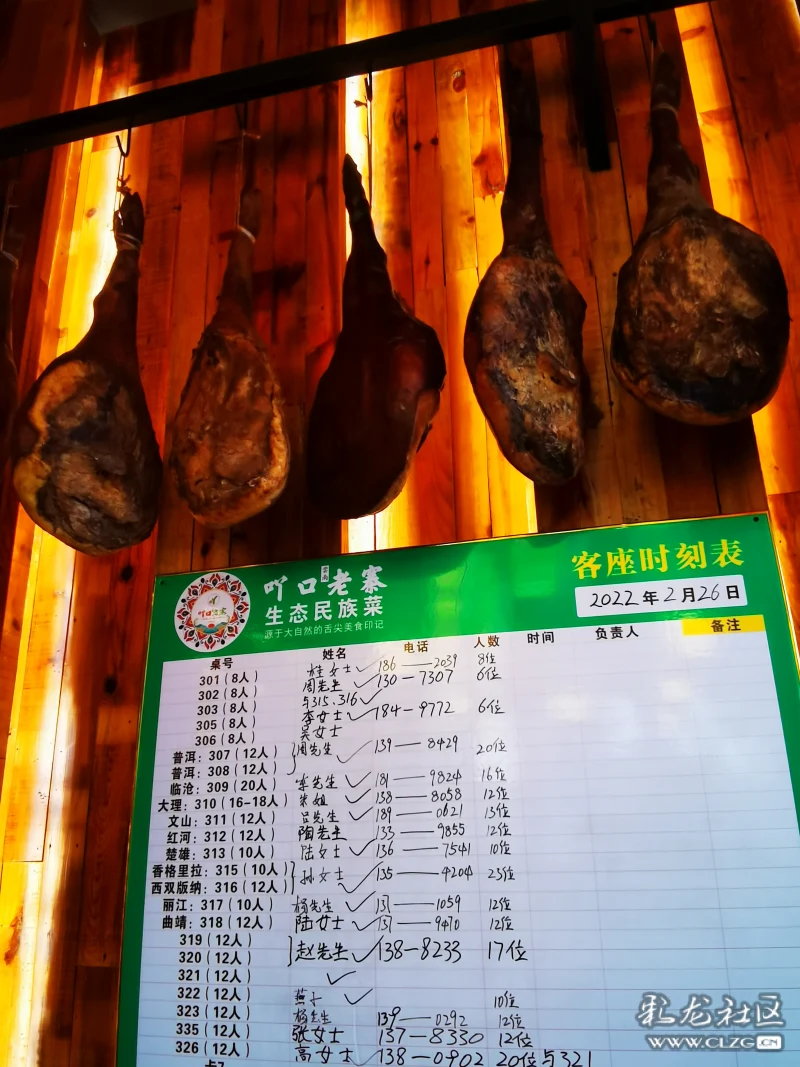 云南
吖口老寨
生态民族菜
源于大自然的舌尖美食印记
吖口老寨
客座时刻表
2022年2月26日
桌号 姓名 电话 人数 时间 负责人 备注
301 (8人) 女士 186——2039 8位
302 (8人) 周先生 130—7307 6位
303 (8人) 与315.316
305 (8人) 李女士 184—9772 6位
306 (8人) 吴女士
普洱: 307 (12人) 周先生 139——8429 20位
普洱: 308 (12人)
临沧: 309 (20人) 先生 181——9824 16位
大理: 310 (16-18人) 朱姐 138——8058 12位
文山: 311 (12人) 吕先生 189——0621 13位
红河: 312 (12人) 陶先生 133——9855 12位
楚雄: 313 (10人) 陆女士 136——7541 10位
香格里拉: 315 (10人) 孙女士 135——4204 23位
西双版纳: 316 (12人)
丽江: 317 (10人) 杨先生 131——1059 12位
曲靖: 318 (12人) 陆女士 131——9470 12位
319 (12人)
320 (12人) 赵先生 138-8233 17位
321 (12人)
322 (12人) 燕子 10位
323 (12人) 杨先生 139——0292 12位
335 (12人) 张女士 137-8330 12位
326 (12人) 高女士 138-0902 20位与321
卡7
乳龙社区
WWW.CLZG.CN